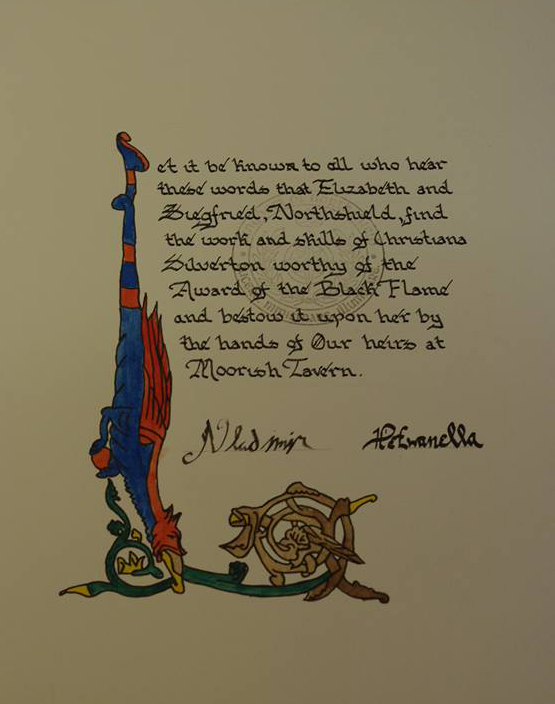 Let it be known to all who hear
these words that Elizabeth and
Siegfried, Northshield, find
the work and skills of Christiana
Silverton worthy of the
Award of the Black Flame
and bestow it upon her by
the hands of Our heirs at
Moorish Tavern.
Vladimir Petranella